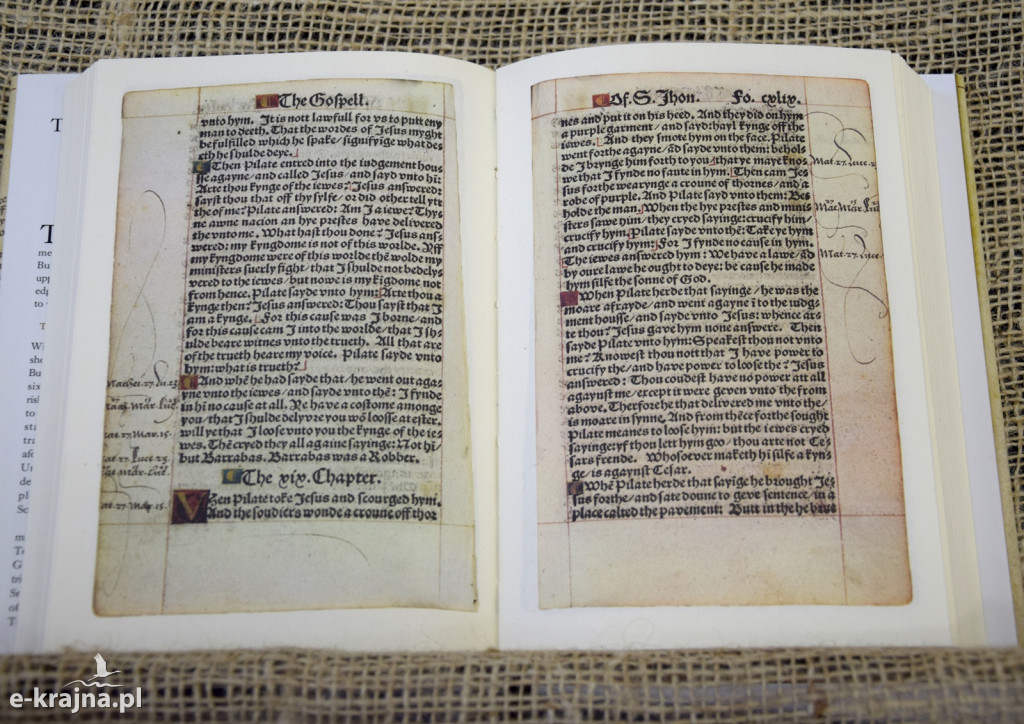 The Gospell.
vnto hym. It is nott lawfull for vs to putt eny
man to deeth. That the wordes of Jesus myght
be fulfilled which he spake/ signifyige what des
eth he shulde deye.
Then Pilate entred into the iudgement hous
se agayne/ and called Jesus/ and sayd vnto hi:
Arte thou kynge of the iewes? Jesus answered:
sayst thou that off thy sylfe/ or did other tell yt
the of me? Pilate answered: Am J a iewe? Thy
ne awne nacion an hye prestes have delivered
the vnto me. What hast thou done? Jesus ans
wered: my kyngdome is not of this worlde. Yff
my kyngdome were of this worlde thē wolde my
ministers suerly fight/ that J shulde not be dely
vered to the iewes/ but nowe is my kigdome not
from hence. Pilate sayde vnto hym: Arte thou a
kynge then? Jesus answered: Thou sayst that J
am a kynge. For this cause was J borne/ and
for this cause cam J into the worlde/ that J sh
ulde beare witnes vnto the trueth. All that are
of the trueth heare my voice. Pilate sayde vnto
hym: what is trueth?
And whē he had sayde that/ he went out aga
yne vnto the iewes/ and sayde vnto thē: J fynde
in hi no cause at all. Ye have a costome amonge
you/ that J shulde delyvre you wō loose at ester.
will ye that J loose vnto you the kynge of the ie
wes. Thē cryed they all againe sayinge: Not hi/
but Barrabas. Barrabas was a Robber.
The xix. Chapter.
VVhen Pilate toke Jesus and scourged hym.
And the soudiers wonde a croune off thor
Of. S. Jhon. Fo. cxlix.
nes and put it on his heed. And they did on hym
a purple garment/ and sayd: hayl kynge off the
iewes. And they smote hym on the face. Pilate
went forthe agayne/ ād sayde vnto them: behol
de J brynge him forth to you/ that ye maye knos
we that J fynde no faute in hym. Then cam Jes
sus forthe wearynge a croune of thornes/ and a
robe of purple. And Pilate sayd vnto them: Be
holde the man. When the hye prestes and minis
sters sawe him/ they cryed sayinge: crucify him/
crucify hym. Pilate sayde vnto thē: Take ye hym
and crucify hym: For J fynde no cause in hym.
The iewes answered hym: We have a lawe/ ād
by oure lawe he ought to deye: be cause he made
hym silfe the sonne of God.
When Pilate herde that sayinge/ he was the
moare afrayde/ and went agayne ī to the iudg
ment housse/ and sayde vnto Jesus: whence ar
te thou? Jesus gave hym none answere. Then
sayde Pilate vnto hym: Speakest thou not vnto
me? Knowest thou nott that J have power to
crucify the/ and have power to loose the? Jesus
answered: Thou coudest have no power att all
agaynst me/ except it were geven vnto the from
above. Therfore he that delivered me vnto the/
is moare in synne. And from thēce forthe sought
Pilate meanes to loose hym: but the iewes cryed
sayinge: yf thou lett hym goo/ thou arte not Ce
sars frende. Whosoever maketh hi silfe a kyn
ge/ is agaynst Cesar.
Whē Pilate herde that sayige he brought Jes
sus forthe/ and sate doune to geve sentence/ in a
place called the pavement: Butt in the he brue
Mat. 27. Luce. 2
Mat. Mar. Luc
Mat. 27. Luce.
e-krajna.pl